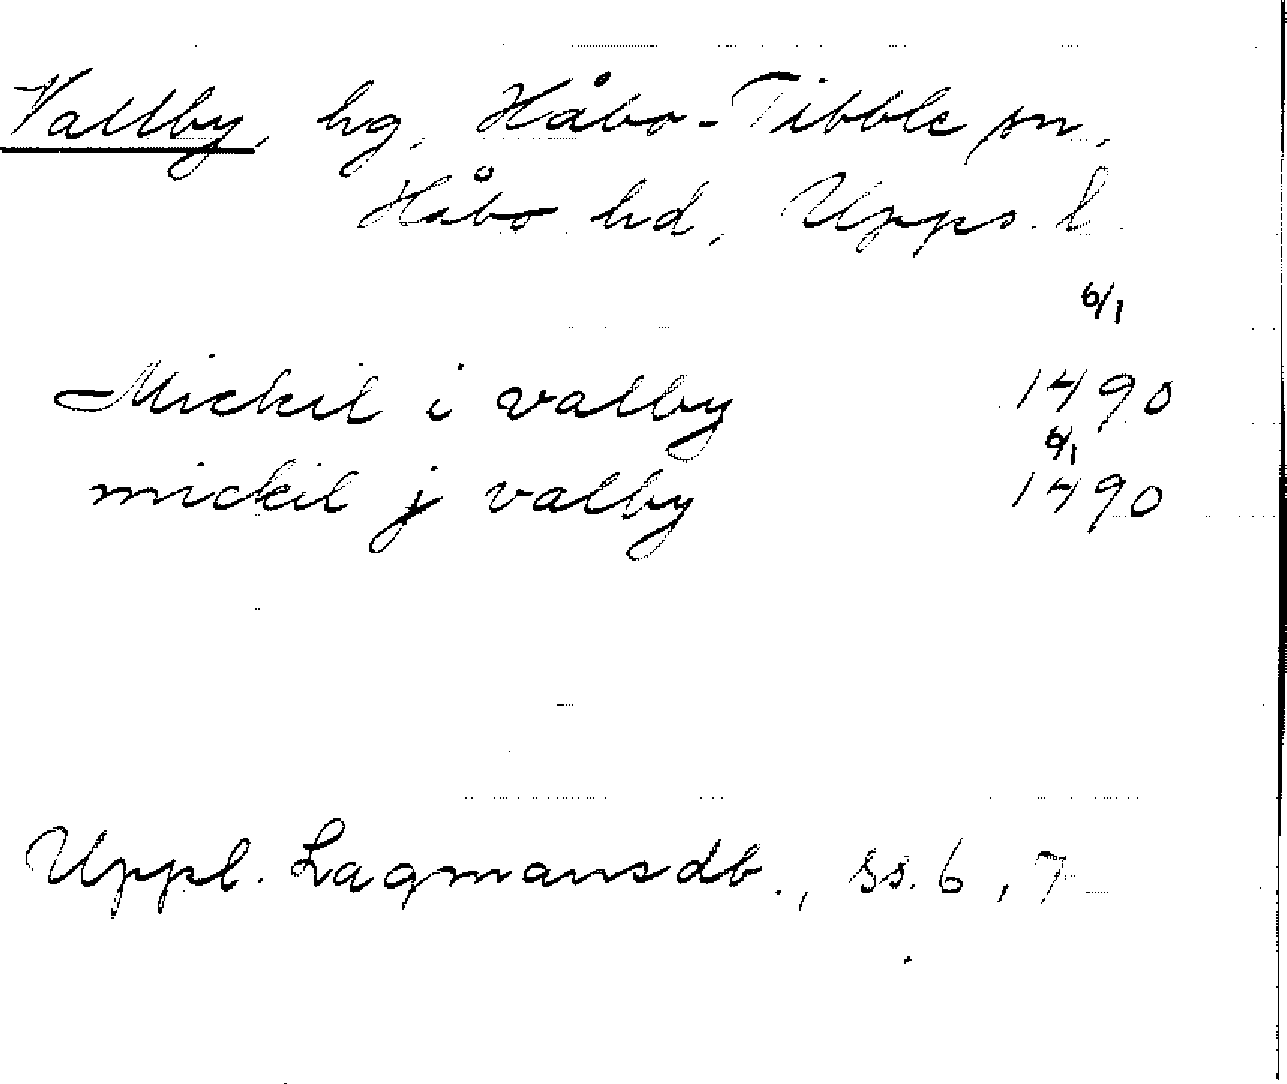 Vallby, hg, Håbo-Tibble sn,
Håbo hd, Upps. l.
6/1
Mickil i valby 1490
6/1
mickil j valby 1490
Uppl. Lagmansdb., ss. 6, 7